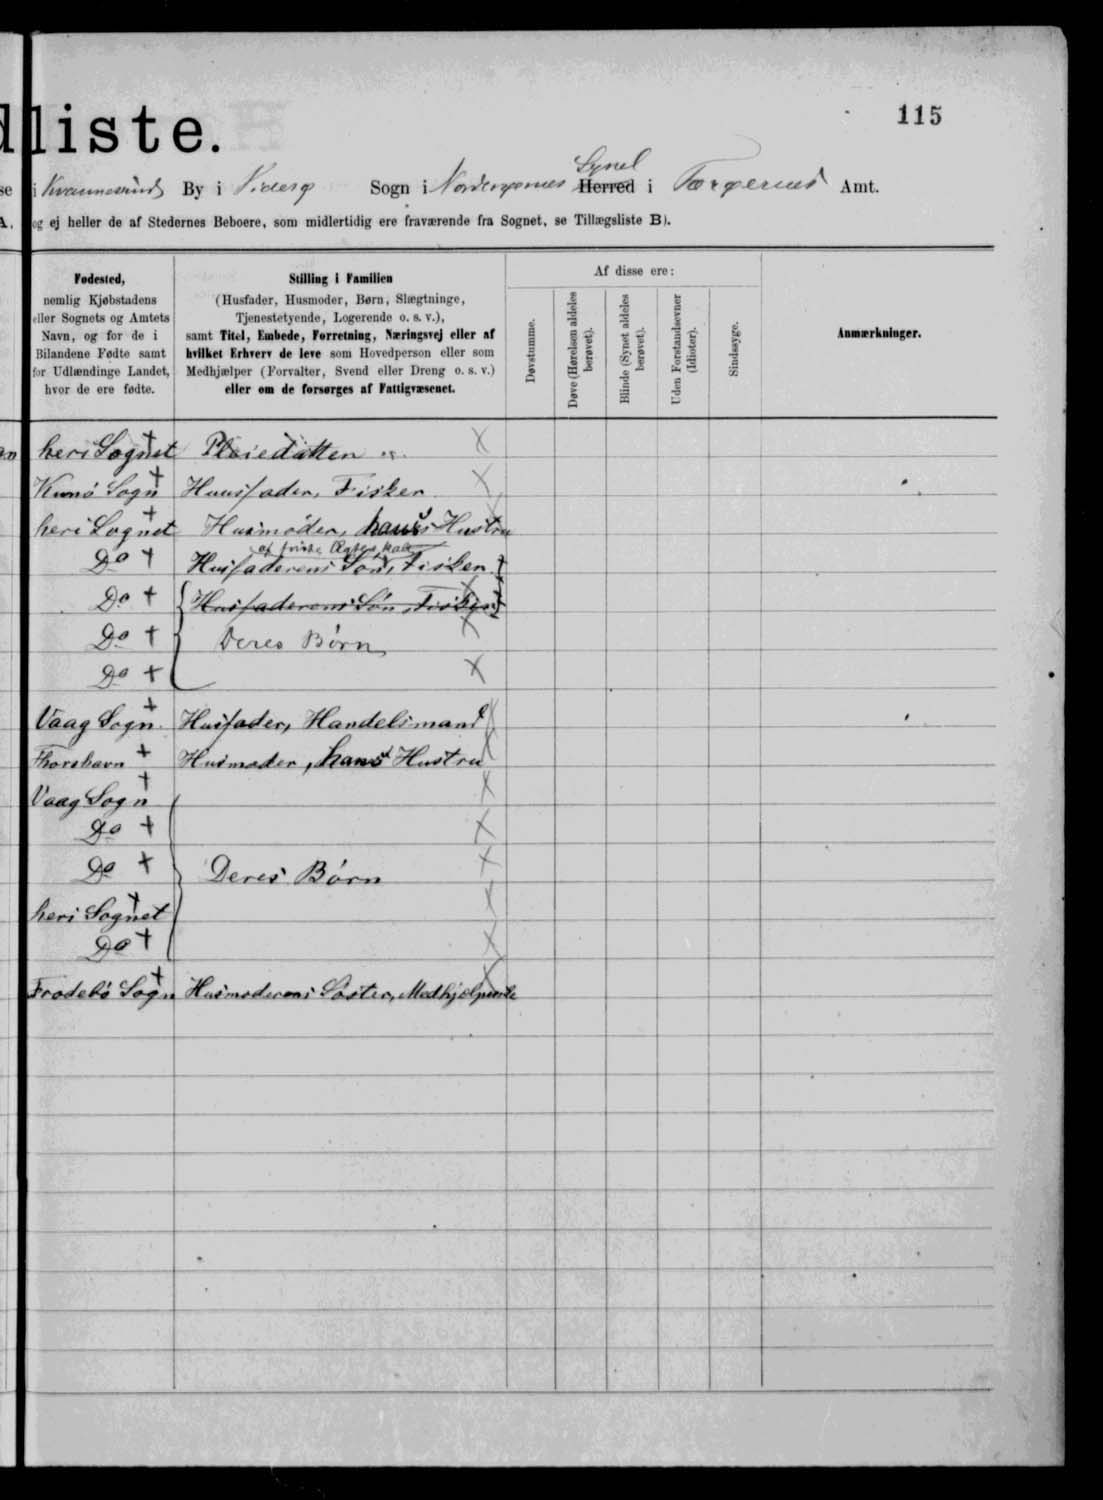 115
liste.
i Kvannesund By i Viderø Sogn i Norderøernes Herred Syssel i Færøernes Amt.
og ej heller de af Stedernes Beboere, som midlertidig ere fraværende fra Sognet, se Tillægsliste B).
Fødested,
nemlig Kjøbstadens
eller Sognets og Amtets
Navn, og for de i
Bilandene Fødte samt
for Udlændinge Landet,
hvor de ere fødte.
Stilling i Familien
(Husfader, Husmoder, Børn, Slægtninge,
Tjenestetyende, Logerende o. s. v.),
samt Titel, Embede, Forretning, Næringsvej eller af
hvilket Erhverv de leve som Hovedperson eller som
Medhjælper (Forvalter, Svend eller Dreng o. s. v.)
eller om de forsørges af Fattigvæsenet.
Af disse ere:
Døvstumme.
Døve (Hørelsen aldeles
berøvet).
Blinde (Synet aldeles
berøvet).
Uden Forstandsevner
(Idioter).
Sindssyge.
Anmærkninger.
heri Sognet Pleiedatter
Kunø Sogn Huusfader, Fisker
heri Sognet Husmoder, hans Hustru
af første Ægteskab
Do Husfaderens Søn, Fisker
Do Husfaderens Søn, Fisker
Do Deres Børn
Do
Vaag Sogn Husfader, Handelsmand
Thorshavn Husmoder, hans Hustru
Vaag Sogn
Do
Do Deres Børn
heri Sognet
Do
Frodebø Sogn Husmoderens Søster, Medhjælpende